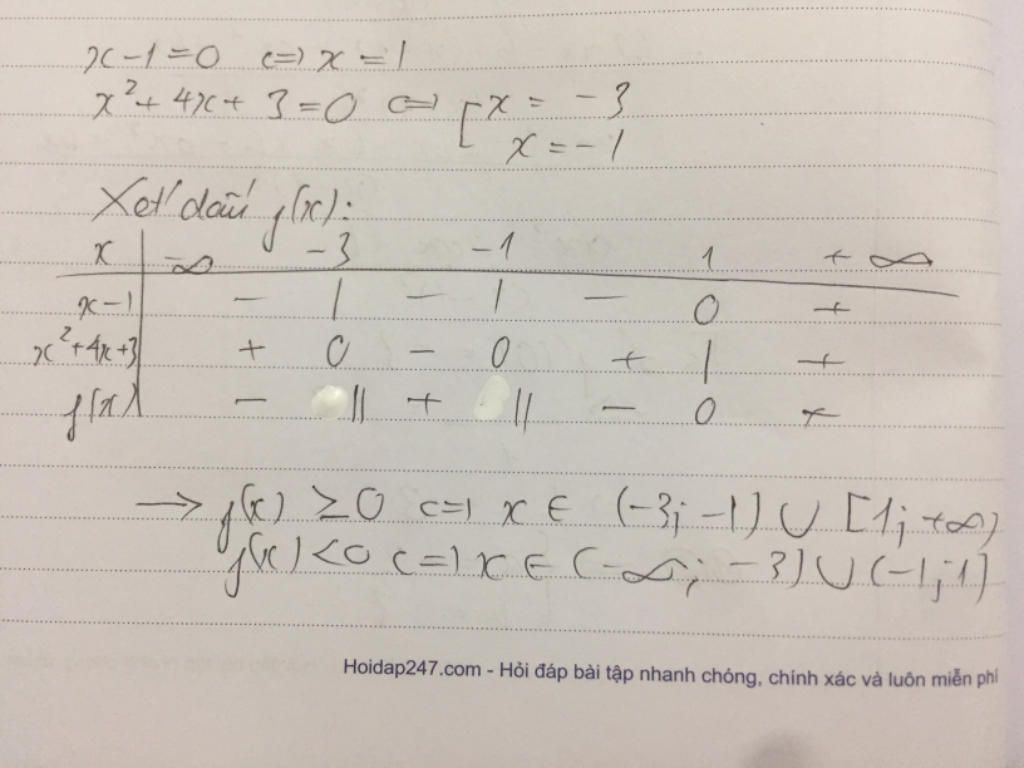 x - 1 = 0 <=> x = 1
x² + 4x + 3 = 0 <=> [ x = -3
x = -1
Xét dấu f(x):
x | -∞ -3 -1 1 +∞
x-1 | - | - | - 0 +
x²+4x+3 | + 0 - 0 + | +
f(x) | - || + || - 0 +
→ f(x) ≥ 0 <=> x ∈ (-3; -1) ∪ [1; +∞)
f(x) < 0 <=> x ∈ (-∞; -3) ∪ (-1; 1)
Hoidap247.com - Hỏi đáp bài tập nhanh chóng, chính xác và luôn miễn phí